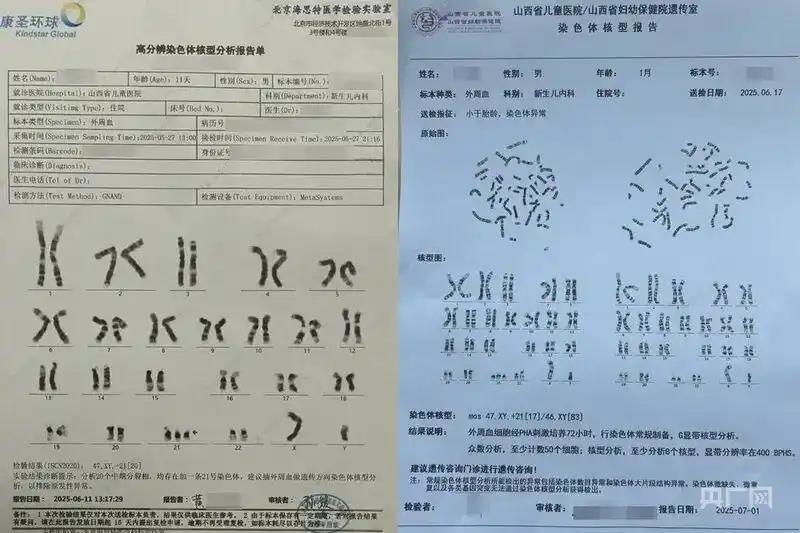 康圣环球
Kindstar Global
北京海思特医学检验实验室
北京市经济技术开发区地盛北街1号
3号楼和4号楼
高分辨染色体核型分析报告单
姓名(Name):
年龄(Age): 11天
性别(Sex): 男
标本编号(No.)
就诊医院(Hospital): 山西省儿童医院
科别(Department): 新生儿内科
就诊类型(Visiting Type): 住院
床号(Bed No.):
医生(Dr)
标本类型(Specimen): 外周血
病历号
采集时间(Specimen Sampling Time):2025-05-27 13:00
接检时间(Specimen Receive Time): 2025-05-27 21:16
检测条码(Barcode):
身份证号
临床诊断(Diagnosis):
医生电话(Tel of Dr):
检测方法(Test Method): GBAND
检测设备(Test Equipment): MetaSystems
1 2 3 4 5
6 7 8 9 10 11 12
13 14 15 16 17 18
19 20 21 22 X Y
检验结果(ISCN2020): 47,XY,+21[20]
实验结果诊断提示: 分析20个中期分裂相,均存在加一条21号染色体,建议抽外周血做遗传方向染色体核型分析,以排除原发性异常。
报告日期: 2025-06-11 13:17:29
报告者: 黄
审核者:
备注: 1 本次检验结果仅对本次送检标本负责,结果仅供临床医生参考。
山西省儿童医院
山西省妇幼保健院
山西省儿童医院/山西省妇幼保健院遗传室
染色体核型报告
姓名:
性别: 男
年龄: 1月
标本号:
标本种类: 外周血
科别: 新生儿内科
住院号:
送检日期: 2025.06.17
送检指征: 小于胎龄,染色体异常
原始图:
核型图:
染色体核型: mos 47,XY,+21[17]/46,XY[83]
结果说明: 外周血细胞经PHA刺激培养72小时,行染色体常规制备,G显带核型分析。
众数分析,至少计数50个细胞;核型分析,至少分析8个核型,显带分辨率在400 BPHS。
建议遗传咨询门诊进行遗传咨询!
注: 常规染色体核型分析所能检出的异常包括染色体数目异常和染色体大片段结构异常。染色体微缺失、微重复以及各类基因突变无法通过染色体核型分析获得检出。
检验者:
审核者:
报告日期: 2025-07-01
央广网